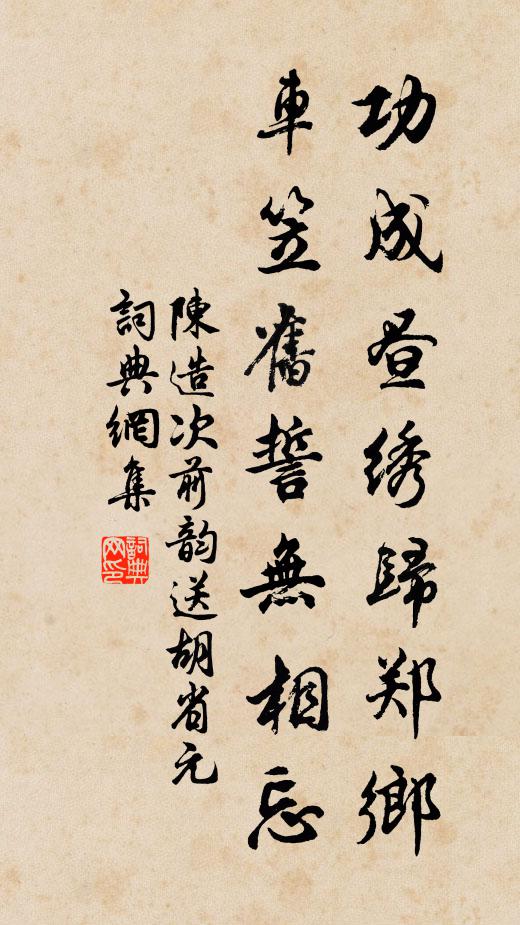 功成昼绣歸郑鄉
車笠舊誓無相忘
陳造次前韵送胡省元
詞典網集
詞典網印